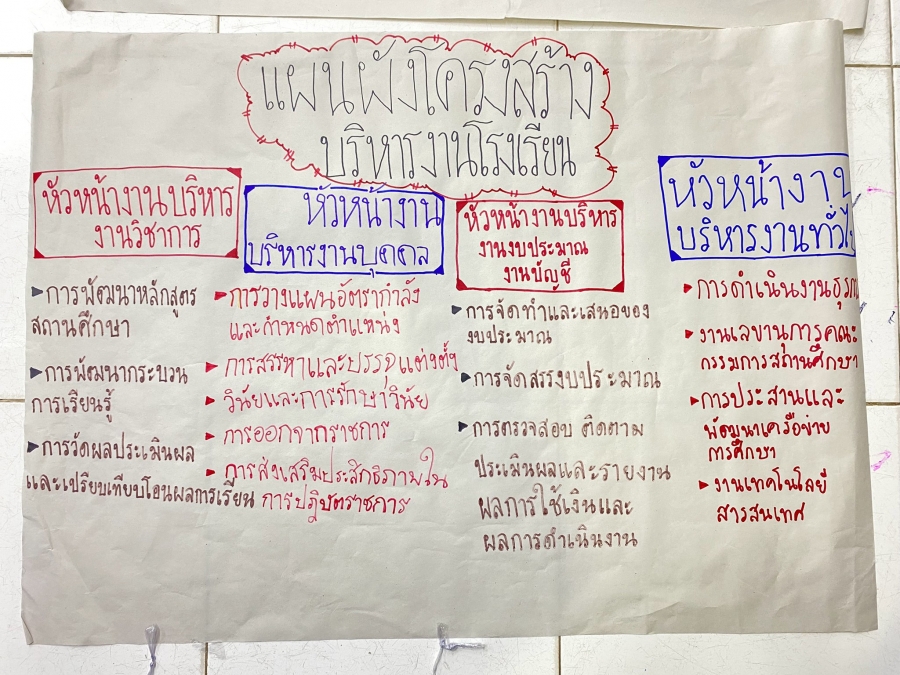 แผนผังโครงสร้าง
บริหารงานโรงเรียน
หัวหน้างานบริหาร
งานวิชาการ
▸การพัฒนาหลักสูตร
สถานศึกษา
▸การพัฒนากระบวน
การเรียนรู้
▸การวัดผลประเมินผล
และเปรียบเทียบโอนผลการเรียน
หัวหน้างาน
บริหารงานบุคคล
▸การวางแผนอัตรากำลัง
และกำหนดตำแหน่ง
▸การสรรหาและบรรจุแต่งตั้ง
▸วินัยและการรักษาวินัย
▸การออกจากราชการ
▸การส่งเสริมประสิทธิภาพใน
การปฎิบัตราชการ
หัวหน้างานบริหาร
งานงบประมาณ
งานบัญชี
▸การจัดทำและเสนอของ
งบประมาณ
▸การจัดสรรงบประมาณ
▸การตรวจสอบ ติดตาม
ประเมินผลและรายงาน
ผลการใช้เงินและ
ผลการดำเนินงาน
หัวหน้างาน
บริหารงานทั่วไป
▸การดำเนินงานธุรกา
▸งานเลขานุการคณะ
กรรมการสถานศึกษา
▸การประสานและ
พัฒนาเครือข่าย
การศึกษา
▸งานเทคโนโลยี
สารสนเทศ